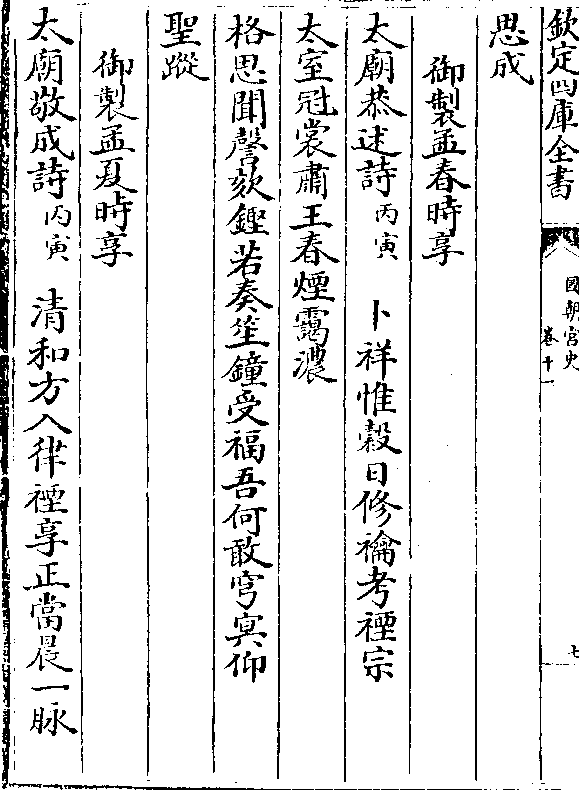 欽定四庫全書
國朝宮史
卷十一
七
思成
御製孟春時享
太廟恭述詩丙寅 卜祥惟穀日修禴考禋宗
太室冠裳肅王春煙靄濃
格思聞謦欬鏗若奏笙鐘受福吾何敢穹㝠仰
聖蹤
御製孟夏時享
太廟敬成詩丙寅 清和方入律禋享正當晨一脉